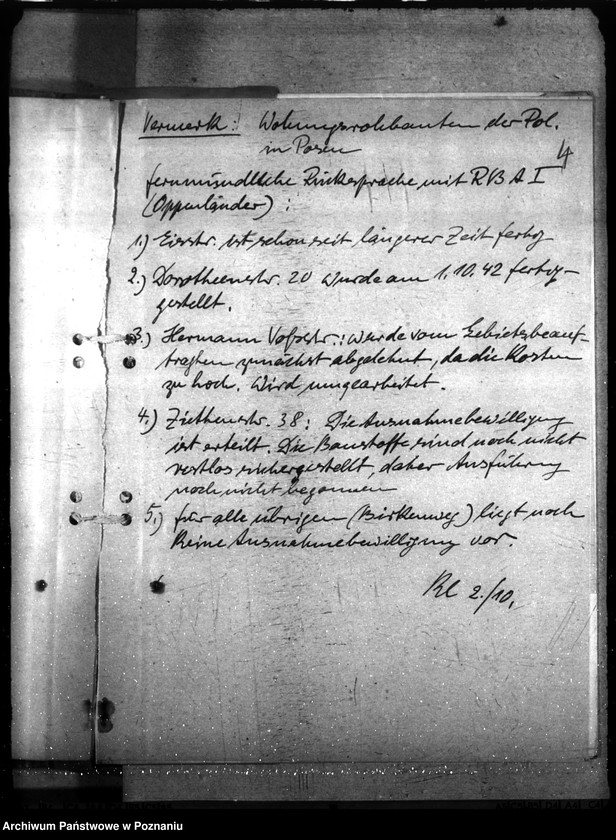 Vermerk: Wohnungsrohbauten der Pol.
in Posen
4
fernmündliche Rücksprache mit RBA I
(Oppenländer):
1.) Eisstr. ist schon seit längerer Zeit fertig
2.) Dorotheenstr. 20 wurde am 1.10.42 fertig-
gestellt.
3.) Hermann Voßstr.: Wurde vom Gebietsbeauf-
tragten zunächst abgelehnt, da die Kosten
zu hoch. Wird umgearbeitet.
4.) Ziethenstr. 38: Die Ausnahmebewilligung
ist erteilt. Die Baustoffe sind noch nicht
restlos sichergestellt, daher Ausführung
noch nicht begonnen
5.) für alle übrigen (Birkenweg) liegt noch
keine Ausnahmebewilligung vor.
Kl 2./10.
Archiwum Państwowe w Poznaniu